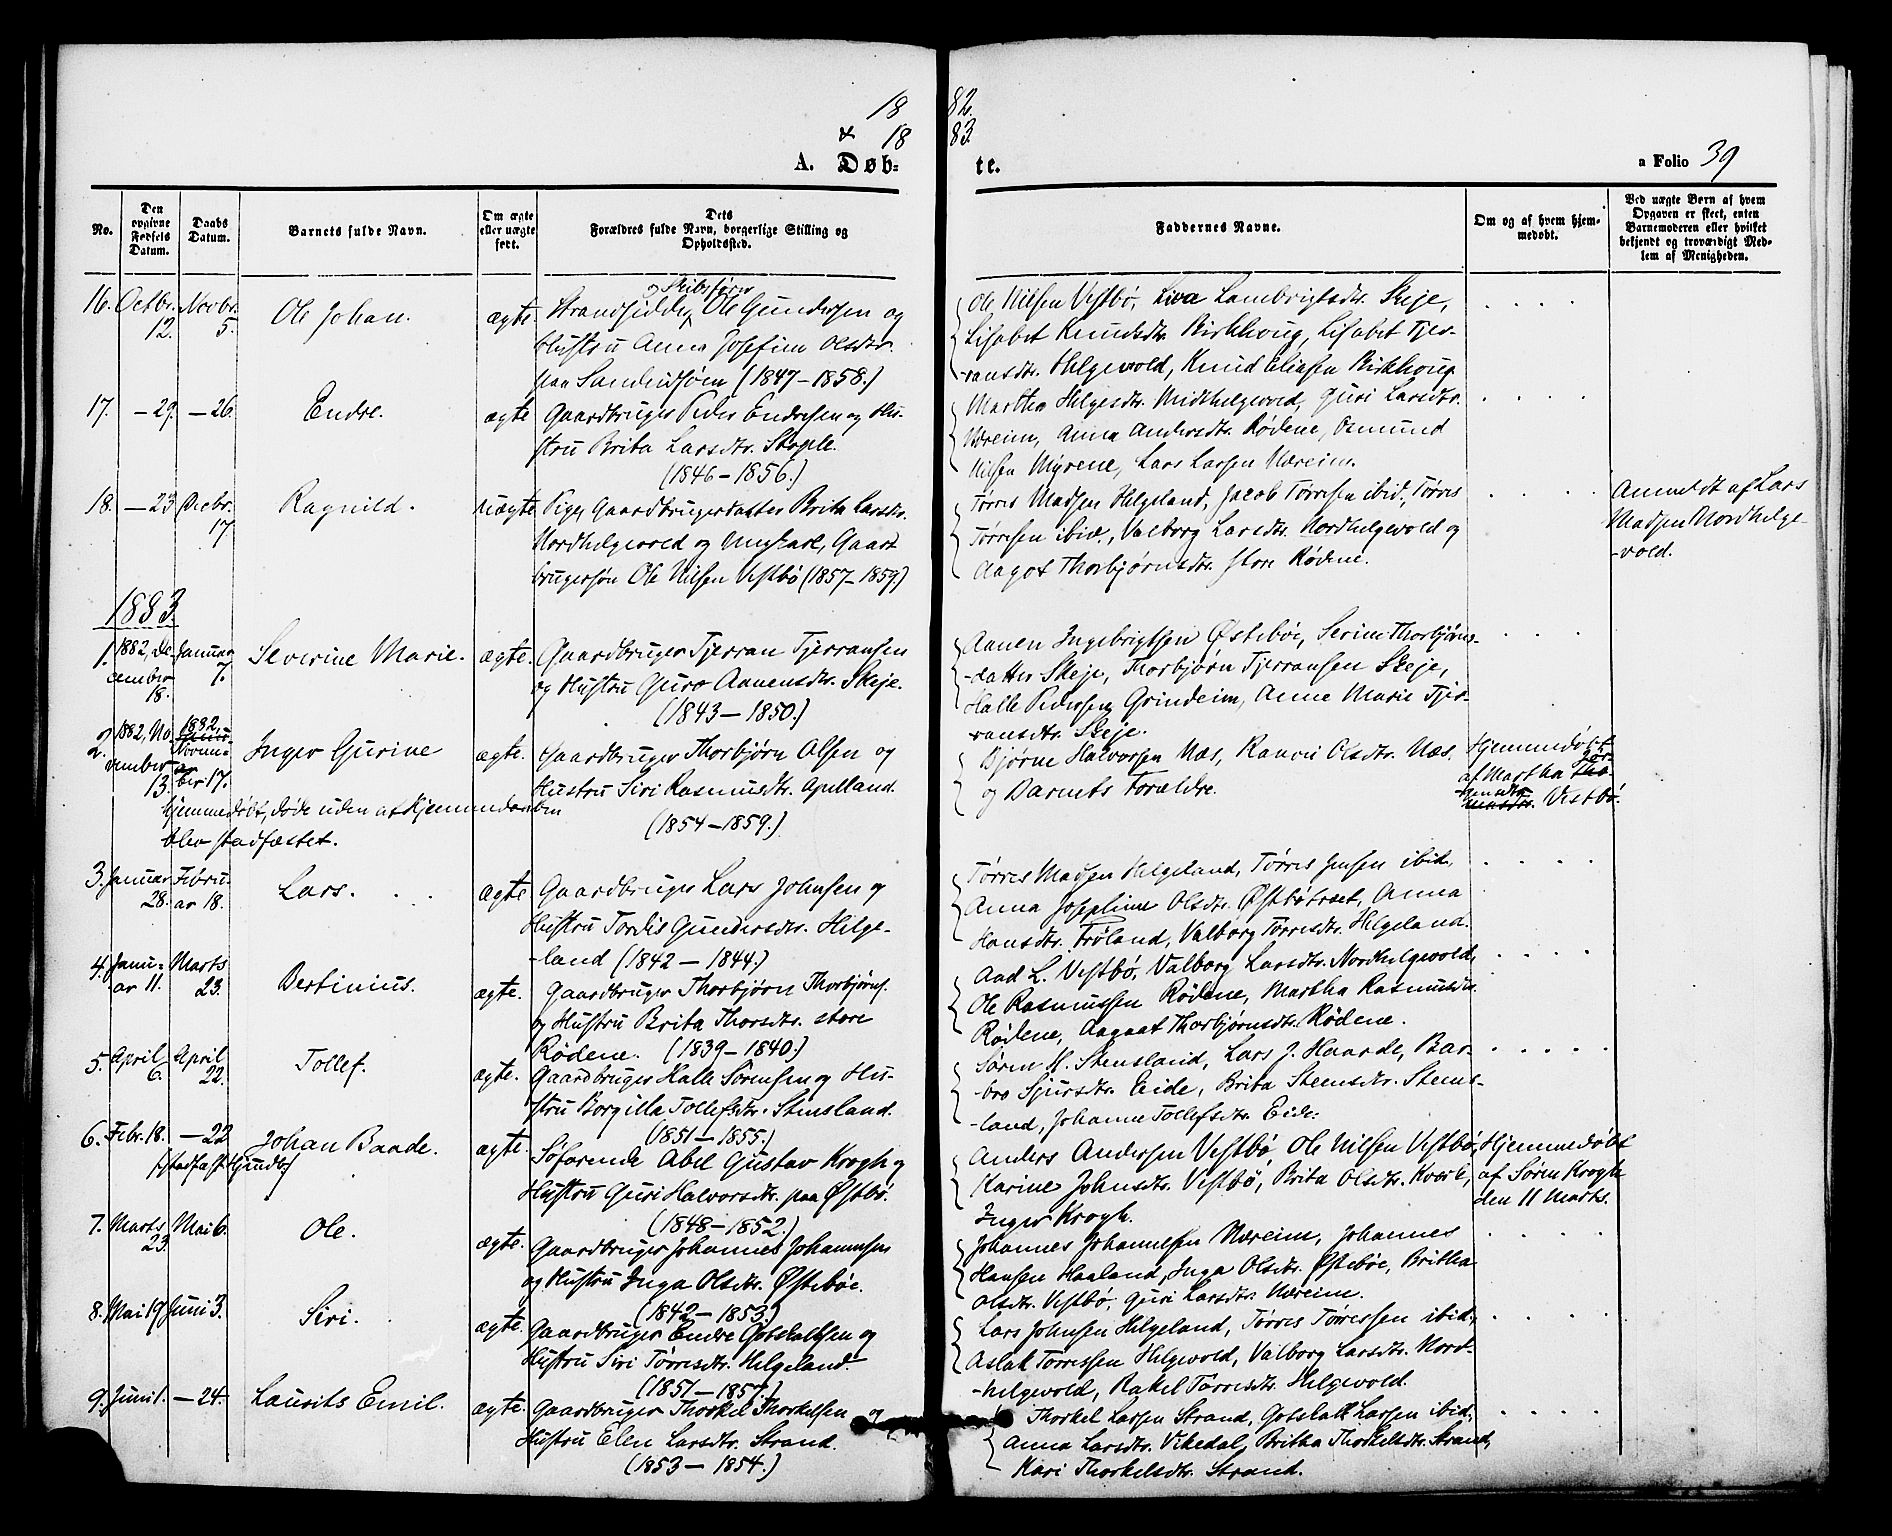 1882.
& 1883.
A. Døbte.
a Folio 39
No.
Den opgivne Fødsels Datum.
Daabs Datum.
Barnets fulde Navn.
Om ægte eller uægte født.
Dets Forældres fulde Navn, borgerlige Stilling og Opholdssted.
Faddernes Navne.
Om og af hvem hjemmedøbt.
Ved uægte Børn af hvem Opgaven er skeet, enten Barnemoderen eller hvilket bekjendt og troværdigt Medlem af Menigheden.
16. Octbr. 12. Novbr. 5. Ole Johan. ægte.
Strandsidder og Skibsfører Ole Gundersen og
Hustru Anna Josefine Olsdtr.
paa (1847-1858.)
Ole Nilsen Vestbø, Liva Lambrigtsdtr. Skeje,
Lisabet Knudsdtr. Birkhoug, Lisabet Tjer-
-ransdtr. Helgevold, Knud Eliasen Birkhoug
17. -29. -26. Endre. ægte
Gaardbruger Peder Endresen og Hu-
stru Brita Larsdtr. Stople.
(1846-1856.)
Martha Helgesdtr. Midthelgevold, Guri Larsdtr.
Næreim, Anna Andersdtr. Rødene, Osmund
Nilsen Myrene, Lars Larsen Næreim.
18. -23 Decbr. 17. Ragnild. uægte
Pige, Gaardbrugerdatter Brita Larsdtr.
Nordhelgevold og Ungkarl, Gaard
brugersøn Ole Nilsen Vestbø (1857-1859)
Tørres Madsen Helgeland, Jacob Tørresen ibid., Tørres
Tørresen ibid., Valborg Larsdtr. Nordhelgevold og
Aagot Thorbjørnsdtr. store Rødene.
Anmeldt af Lars
Madsen Nordhelge-
-vold.
1883.
1. 1882, De-
cember
18. Januar
7. Severine Marie. ægte.
Gaardbruger Tjerran Tjerransen
og Hustru Guro Aanensdtr. Skeje.
(1843-1850.)
Aanen Ingebrigtsen Østebøe, Serine Thorbjørns-
-datter Skeje, Thorbjørn Tjerransen Skeje,
Halle Pedersen Grindeim, Anne Marie Tjer-
ransdtr. Skeje.
2. 1882, No-
vember
13. 1882,
Novem-
ber 17. Inger Gurine ægte.
Gaardbruger Thorbjørn Olsen og
Hustru Siri Rasmusdtr. Apelland.
(1854-1859.)
Hjemmedøbt, døde uden at Hjemmedaaben
blev stadfæstet.
Bjørne Halvorsen Næs, Ranvei Olsdtr. Næs.
og Barnets Forældre.
Hjemmedøbt
af Martha
Vestbø.
3. Januar
28. Febru-
ar 18. Lars. ægte
Gaardbruger Lars Johnsen og
Hustru Tordis Gundersdtr. Helge-
-land (1842-1844.)
Tørres Madsen Helgeland, Tørres Jensen ibid,
Anna Josephine Olsdtr. Østbøtræt, Anna
Hansdtr. Frøland, Valborg Tørresdtr. Helgeland.
4. Janu-
ar 11. Marts
23. Bertinius. ægte.
Gaardbruger Thorbjørn Thorbjørns.
og Hustru Brita Thorsdtr. store
Rødene. (1839-1840.)
Aad L. Vestbø, Valborg Larsdtr. Nordhelgevold,
Ole Rasmussen Rødene, Martha Rasmusdtr.
Rødene, Aagaat Thorbjørnsdtr. Rødene.
5. April
6. April
22. Tollef. ægte.
Gaardbruger Halle Sørensen og Hu-
stru Borgilla Tollefsdtr. Stensland.
(1851-1855.)
Søren H. Stensland, Lars J. Haarde, Bar-
-bro Sjursdtr. Eide, Brita Steensdtr. Stens-
-land, Johanne Tollefsdtr. Eide.
6. Febr. 18. -22 Johan Baade. ægte.
Søfarende Abel Gustav Krogh og
Hustru Guri Halvorsdtr. paa Østbø.
(1848-1852.)
Anders Andersen Vestbø, Ole Nilsen Vestbø,
Karine Johnsdtr. Vestbø, Brita Olsdtr. Kværk,
Inger Krogh.
Hjemmedøbt
af Søren Krogh
den 11 Marts.
7. Marts
23. Mai 6. Ole. ægte.
Gaardbruger Johannes Johannesen
og Hustru Inga Olsdtr. Østebøe.
(1842-1853)
Johannes Johannesen Næreim, Johannes
Hansen Haaland, Inga Olsdtr. Østebøe, Britha
Olsdtr. Vestbø, Guri Larsdtr. Næreim.
8. Mai 19 Juni 3. Siri. ægte.
Gaardbruger Endre Gotskalksen og
Hustru Siri Tørresdtr. Helgeland.
(1851-1857.)
Lars Johnsen Helgeland, Tørres Tørressen ibid,
Aslak Tørressen Helgevold, Valborg Larsdtr. Nord-
-helgevold, Rakel Tørresdtr. Helgevold.
9. Juni 1. -24. Laurits Emil. ægte.
Gaardbruger Thorkel Thorkelsen og
Hustru Elen Larsdtr. Strand.
(1853-1854.)
Thorkel Larsen Strand, Gotskalk Larsen ibid,
Anna Larsdtr. Vikedal, Britha Thorkelsdtr. Strand,
Kari Thorkelsdtr. Strand.